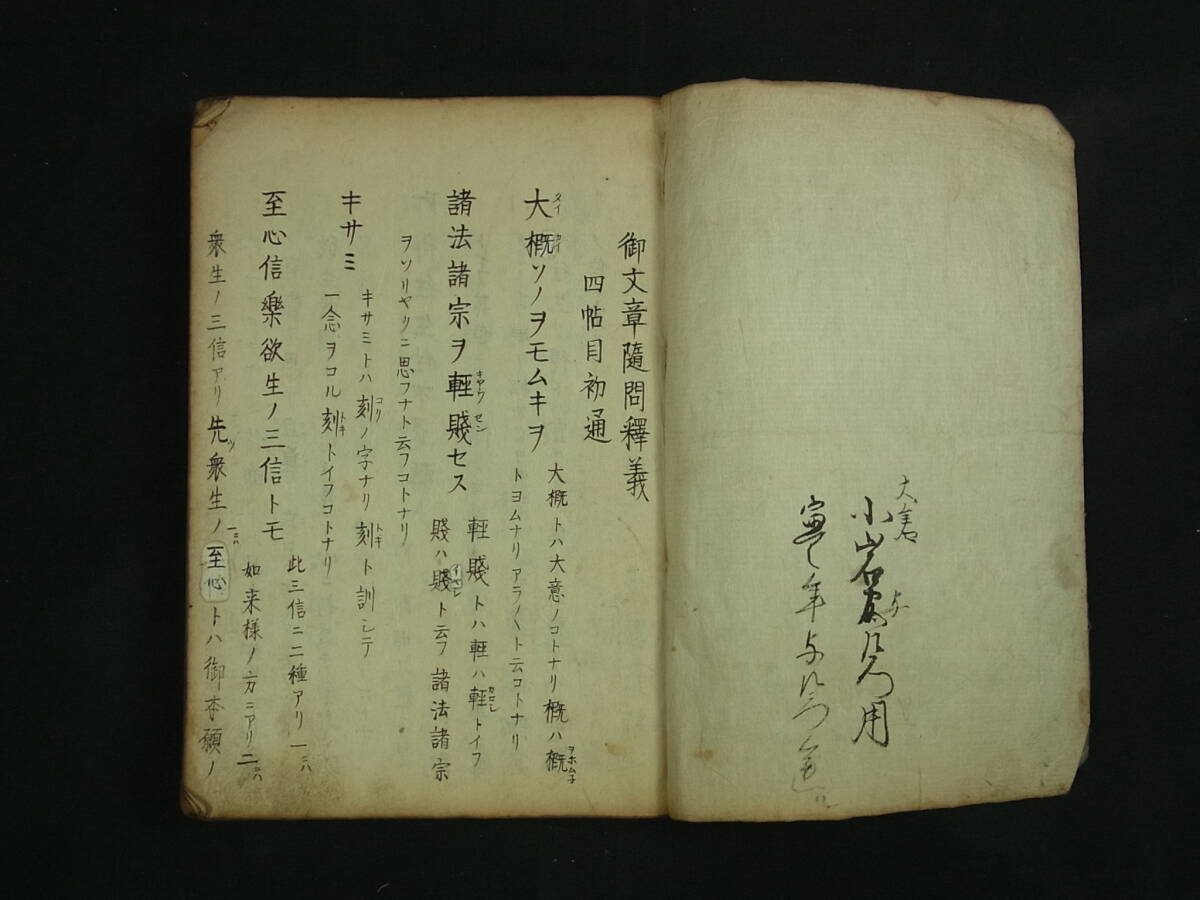 小岩
用
年
御文章隨問釋義
四帖目初通
大概ソノヲモムキヲ
タイ カイ
大概トハ大意ノコトナリ概ハ概
ヲホム子
トヨムナリアラ〱ト云コトナリ
諸法諸宗ヲ軽賤セス
キヤウ セン
軽賤トハ軽ハ軽トイフ
カロシ
賤ハ賤ト云フ諸法諸宗
イヤシ
ヲソリヤクニ思フナト云フコトナリ
キサミ
キサミトハ刻ノ字ナリ刻ト訓シテ
コク トキ
一念ヲコル刻トイフコトナリ
トキ
至心信樂欲生ノ三信トモ
此三信ニ二種アリ一ニハ
如来様ノ方ニアリ二ニハ
衆生ノ三信アリ先ツ衆生ノ一ニハ至心トハ御本願ノ